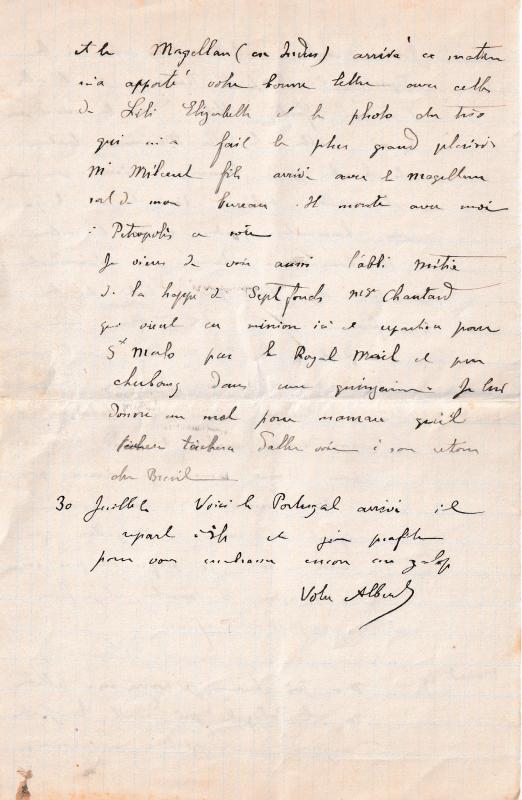 et le Magellan (ex Indus) arrivé ce matin
m'a apporté votre bonne lettre avec celle
de Lili Elizabeth et la photo du trio
qui m'a fait le plus grand plaisir
Mr fils arrivé avec le Magellan
sort de mon bureau. Il monte avec moi
à Petropolis ce soir
Je viens de voir aussi l'abbé mitré
de la Trappe de Septfonds Mgr Chautard
qui vient en mission ici et repartira pour
St Malo par le Royal Mail et par
Cherbourg dans une quinzaine. Je lui
donne un mot pour maman qu'il
tachera d'aller voir à son retour
du Bresil
30 Juillet Voici le Portugal arrivé il
repart à et j'en profite
pour vous embrasser encore au galop
Votre Albert